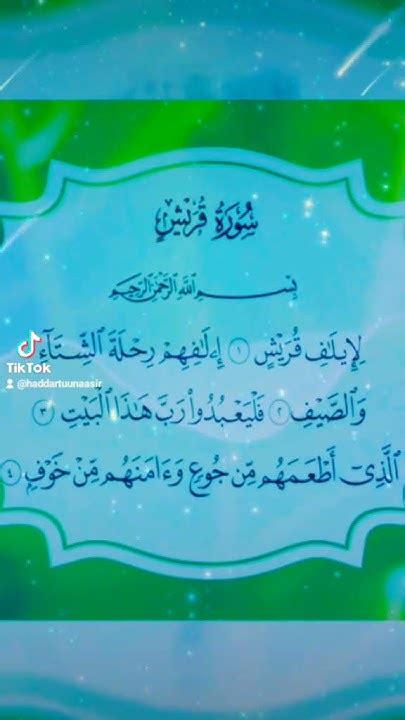 سُورَةُ قُرَيْشٍ
بِسْمِ ٱللَّهِ ٱلرَّحْمَٰنِ ٱلرَّحِيمِ
لِإِيلَٰفِ قُرَيْشٍ ١ إِۦلَٰفِهِمْ رِحْلَةَ ٱلشِّتَآءِ
وَٱلصَّيْفِ ٢ فَلْيَعْبُدُوا۟ رَبَّ هَٰذَا ٱلْبَيْتِ ٣
ٱلَّذِىٓ أَطْعَمَهُم مِّن جُوعٍ وَءَامَنَهُم مِّنْ خَوْفٍۭ ٤
TikTok
@haddartuunaasir